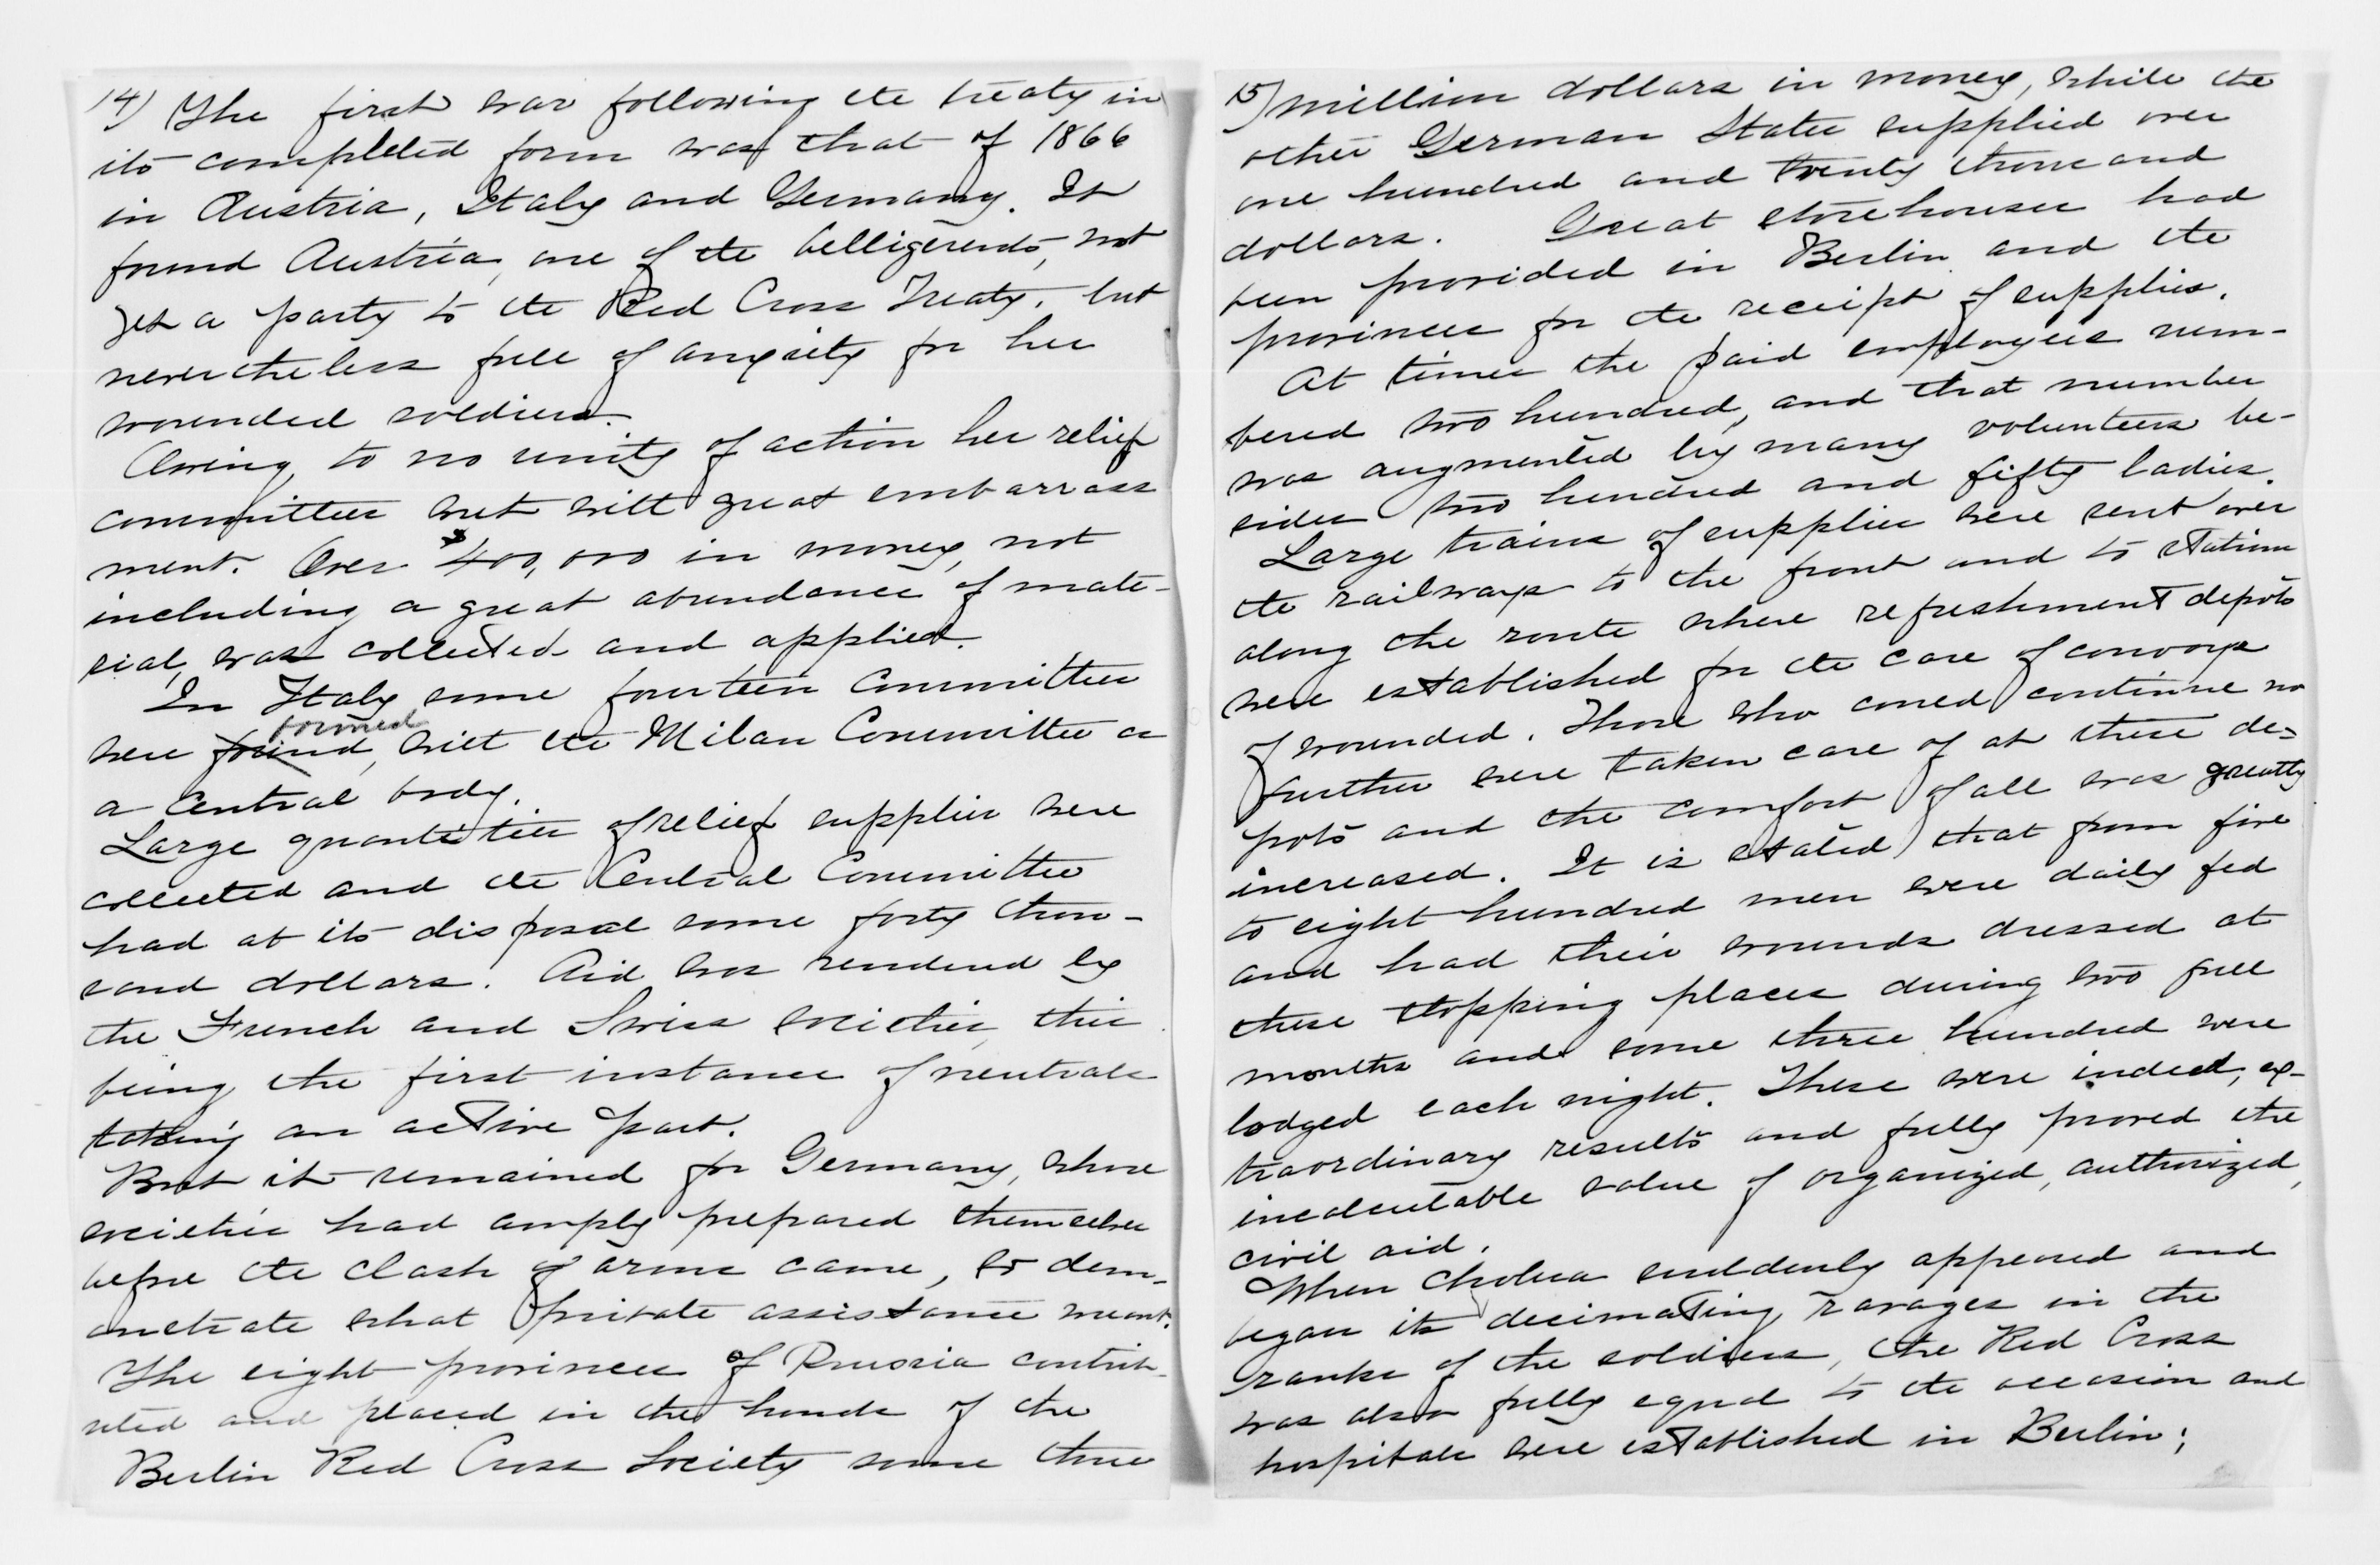 14) The first war following the treaty in
its completed form was that of 1866
in Austria, Italy and Germany. It
found Austria, one of the belligerents, not
yet a party to the Red Cross Treaty, but
nevertheless full of anxiety for her
wounded soldiers.
Owing to no unity of action her relief
committees met with great embarrass
ment. Over $400,000 in money, not
including a great abundance of mate-
rial, was collected and applied.
In Italy some fourteen Committees
formed
were found, with the Milan Committee as
a Central body.
Large quantities of relief supplies were
collected and the Central Committee
had at its disposal some forty thou-
sand dollars. Aid was rendered by
the French and Swiss societies, this
being the first instance of neutrals
taking an active part.
But it remained for Germany, whose
societies had amply prepared themselves
before the clash of arms came, to dem-
onstrate what private assistance meant.
The eight provinces of Prussia contrib-
uted and placed in the hands of the
Berlin Red Cross Society some three
15) million dollars in money, while the
other German States supplied over
one hundred and twenty thousand
dollars. Great storehouses had
been provided in Berlin and the
provinces for the receipt of supplies.
At times the paid employees num-
bered two hundred, and that number
was augmented by many volunteers be-
sides two hundred and fifty ladies.
Large trains of supplies were sent over
the railways to the front and to stations
along the route where refreshment depots
were established for the care of convoys
of wounded. Those who could continue no
further were taken care of at these de-
pots and the comfort of all was greatly
increased. It is stated that from five
to eight hundred men were daily fed
and had their wounds dressed at
these stopping places during two full
months and some three hundred were
lodged each night. These were indeed, ex-
traordinary results and fully proved the
incalculable value of organized, authorized,
civil aid.
When Cholera suddenly appeared and
began its decimating ravages in the
ranks of the soldiers, the Red Cross
was also fully equal to the occasion and
hospitals were established in Berlin;